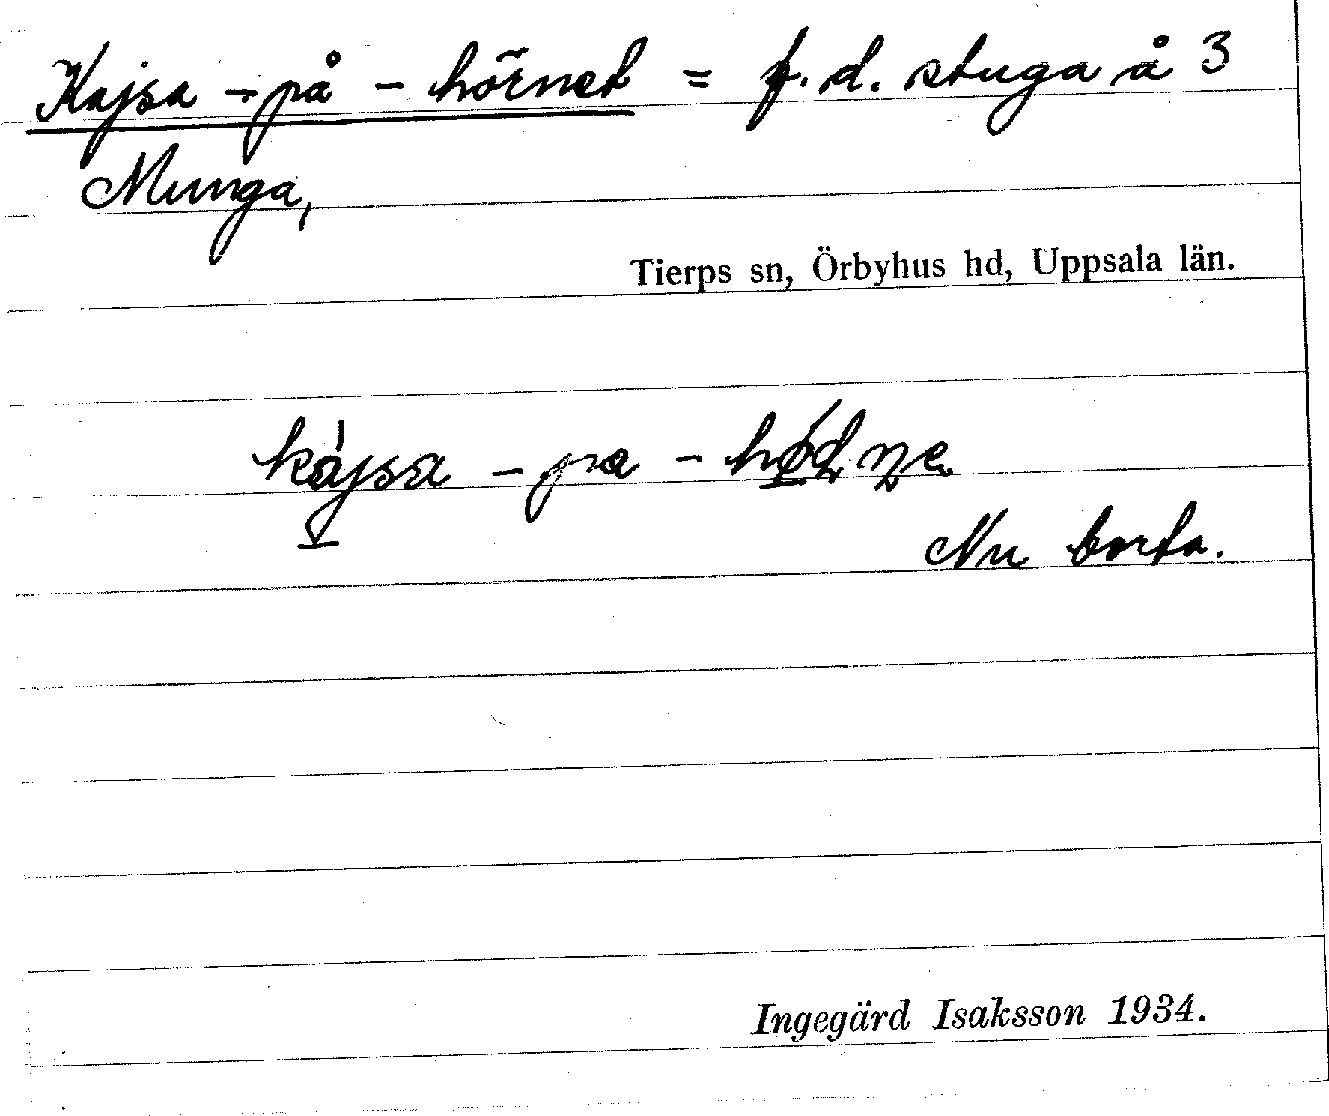 Kajsa - på - hörnet = f.d. stuga å 3
Munga,
Tierps sn, Örbyhus hd, Uppsala län.
kajsa - pa -
Nu borta.
Ingegärd Isaksson 1934.